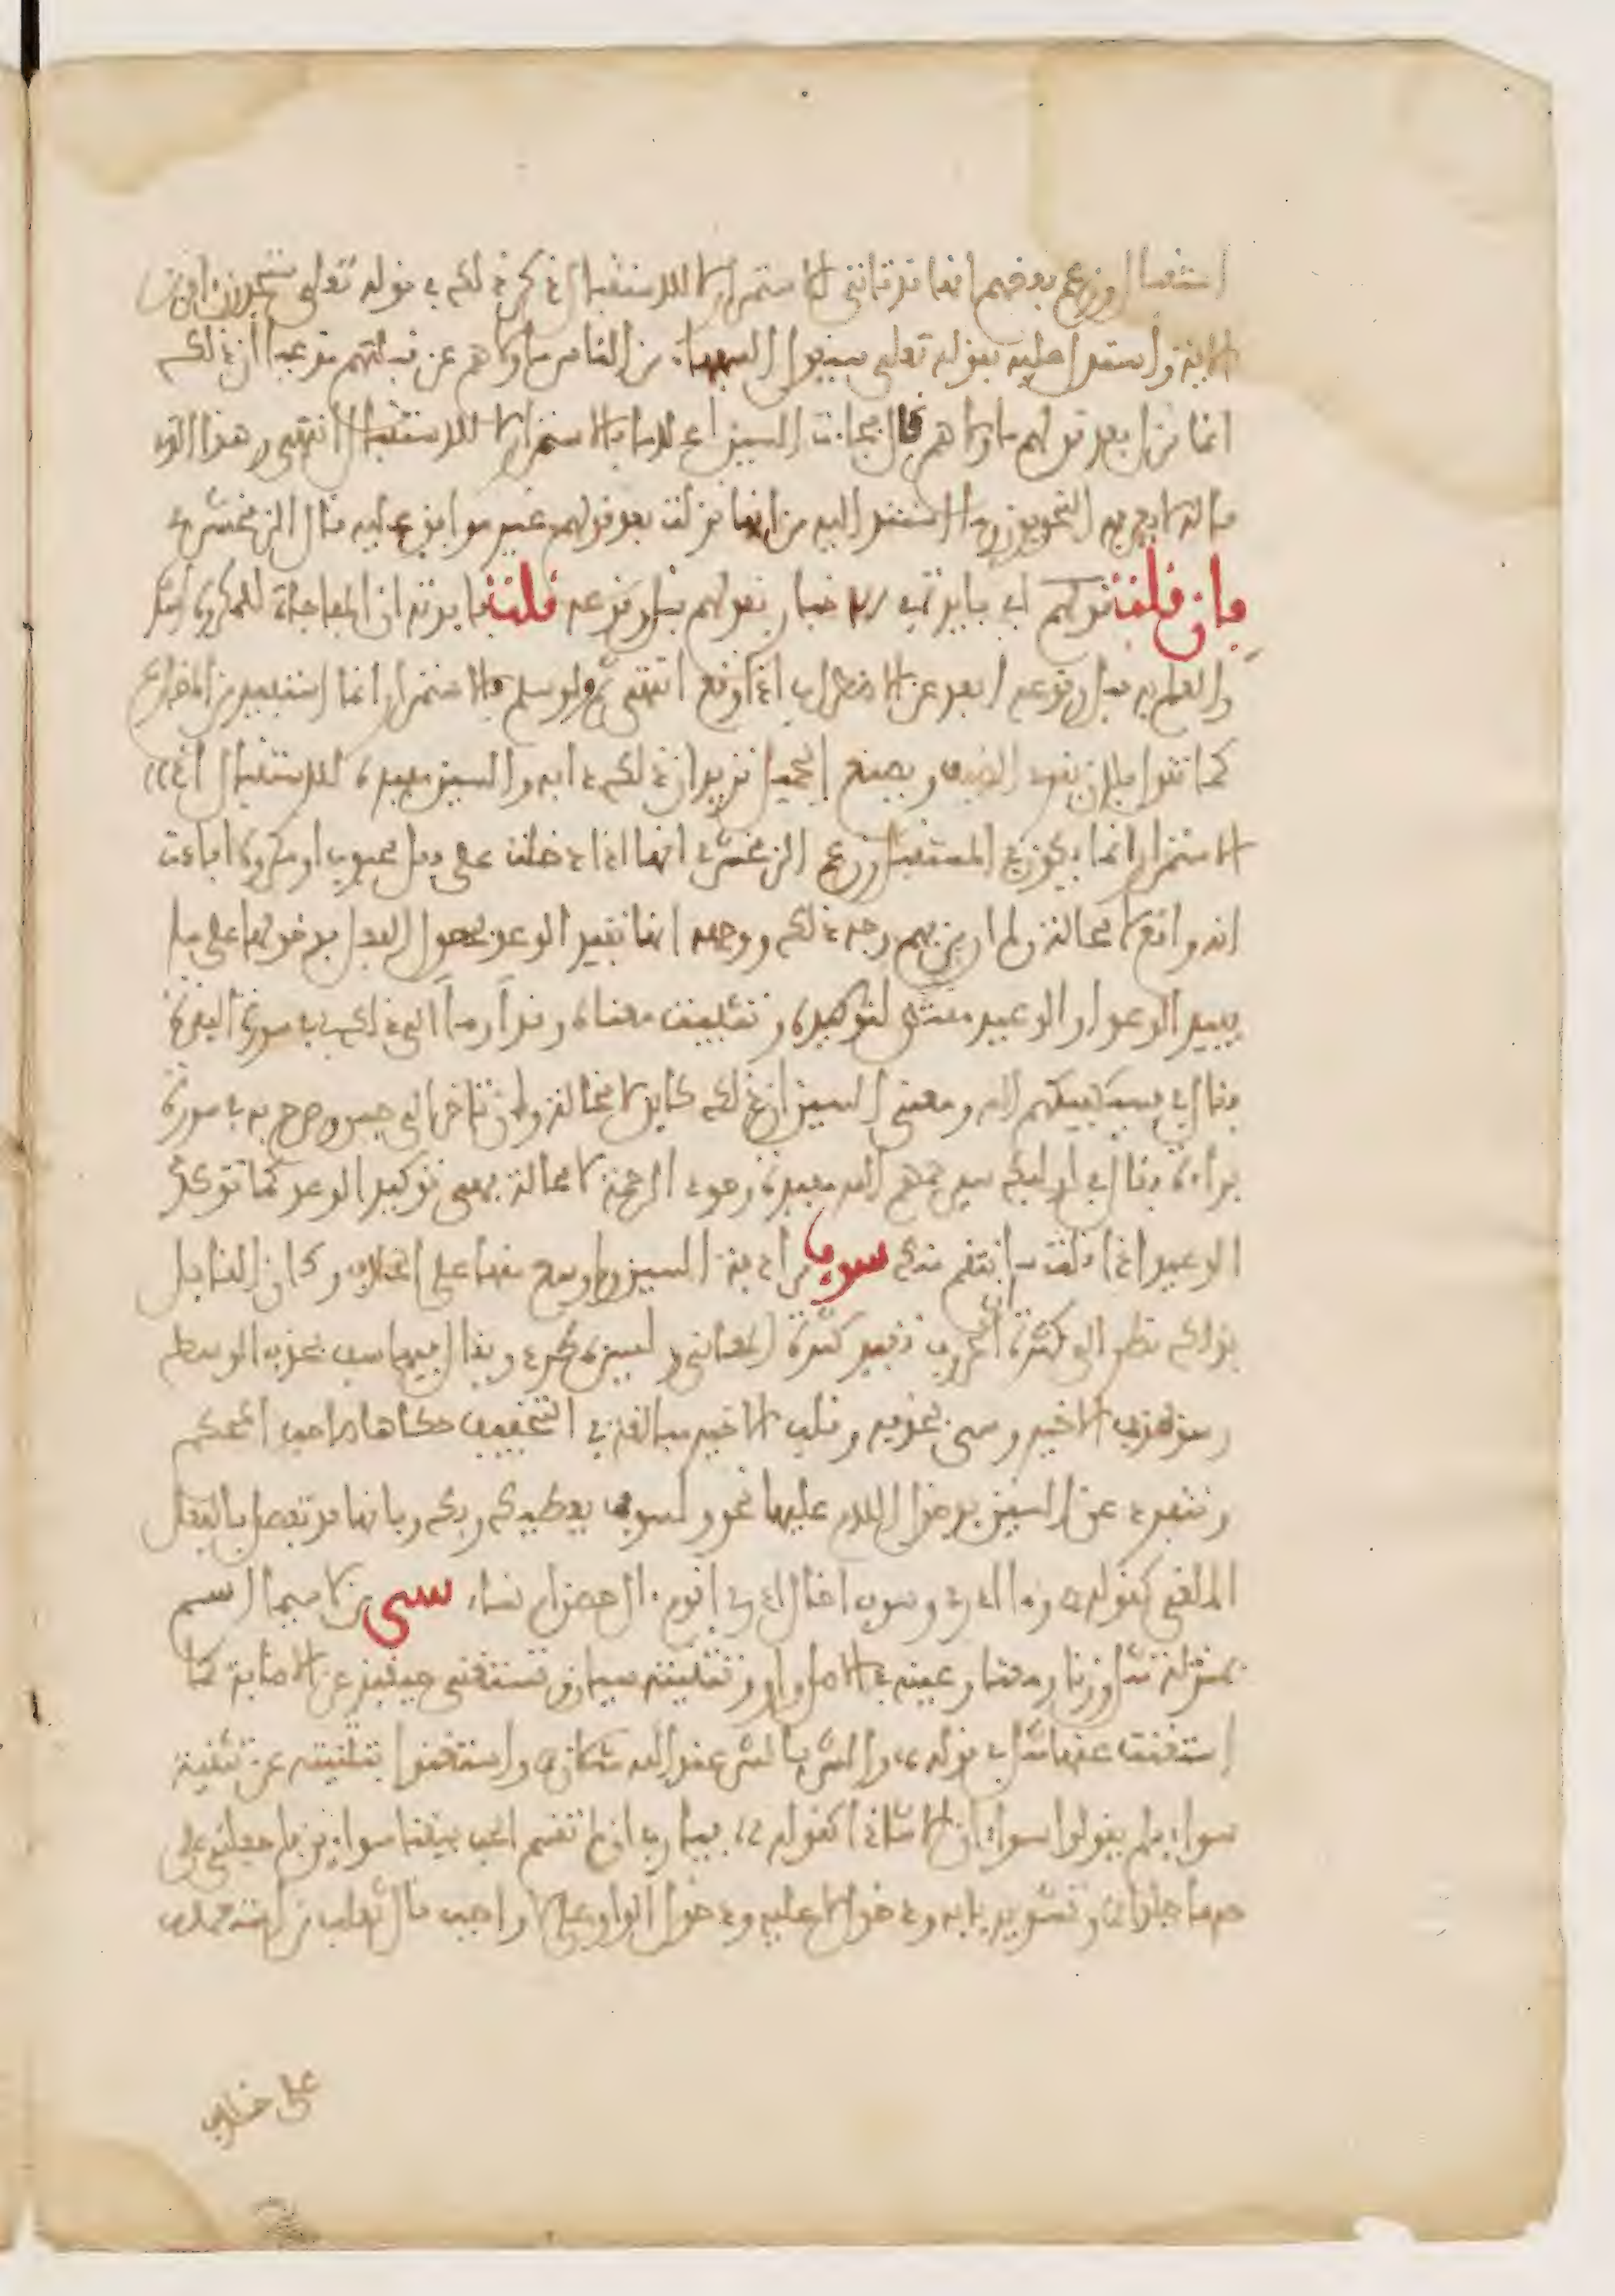 استقبال وزعم بعضهم انها قد تاتي للاستمرار لا للاستقبال ذكر ذلك في قوله تعلى ستجدون اخرين
الاية واستدل عليه بقوله تعلى سيقول السفهاء من الناس ما ولاهم عن قبلتهم مدعيا ان ذلك
انما نزل بعد قولهم ما ولاهم قال فجاءت السين اعلاما بالاستمرار لا للاستقبال انتهى وهذا الذي
قاله لا يعرفه النحويون وما استند اليه من انها نزلت بعد قولهم غير موافق عليه قال الزمخشري
فان قلت قولهم اي فايدة في الاخبار بقولهم قبل وقوعه قلت فايدته ان المفاجاة للمكروه اشد
والعلم به قبل وقوعه ابعد عن الاضطراب اذا وقع انتهى ثم ولو سلم فالاستمرار انما استفيد من المضارع
كما تقول فلان يقري الضيف ويصنع الجميل تريد ان ذلك دابه والسين مفيدة للاستقبال اذ
الاستمرار انما يكون في المستقبل وزعم الزمخشري انها اذا دخلت على فعل محبوب او مكروه افادت
انه واقع لا محالة ولم ار من فهم وجه ذلك ووجهه انها تفيد الوعد بحصول الفعل فدخولها على ما
يفيد الوعد او الوعيد مقتض لتوكيده وتثبيت معناه وقد اوما الى ذلك في سورة البقرة
فقال في فسيكفيكهم الله ومعنى السين ان ذلك كاين لا محالة وان تاخر الى حين وصرح به في سورة
براءة فقال في اوليك سيرحمهم الله مفيدة وجود الرحمة لا محالة فهي توكيد الوعد كما توكد
الوعيد اذا قلت سانتقم منك سوف مرادفة السين او اوسع منها على الخلاف وكان القايل
بذلك نظر الى كثرة الحروف تفيد كثرة المعاني وليس بمطرد ويقال فيها سف بحذف الوسط
وسو بحذف الاخير وسي بحذفه وقلب الاخير مبالغة في التخفيف حكاها صاحب المحكم
وتنفرد عن السين بدخول اللام عليها نحو ولسوف يعطيك ربك وبانها قد تفصل بالفعل
الملغى كقوله وما ادري وسوف اخال ادري اقوم ءال حصن ام نساء سي من لاسيما اسم
بمنزلة مثل وزنا ومعنى وعينه في الاصل واو وتثنيته سيان وتستغني حينئذ عن الاضافة كما
استغنت عنها مثل في قوله والشر بالشر عند الله مثلان واستغنوا بتثنيته عن تثنية
سواء فلم يقولوا سواءان الا شاذا كقوله فيارب ان لم تقسم الحب بيننا سواءين فاجعلني على
حبها جلدا وتشديد يايه ودخول لا عليه ودخول الواو على لا واجب قال ثعلب من استعمله
على خلاف